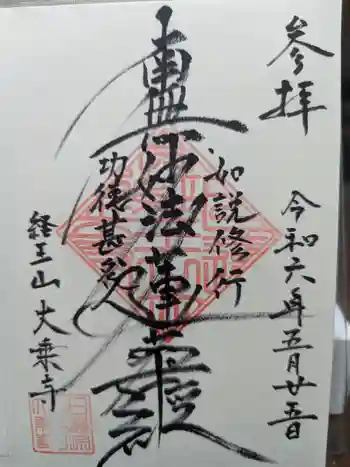 参拝
令和六年五月廿五日
如説修行
南無妙法蓮華経
功徳甚多
経王山 大乗寺